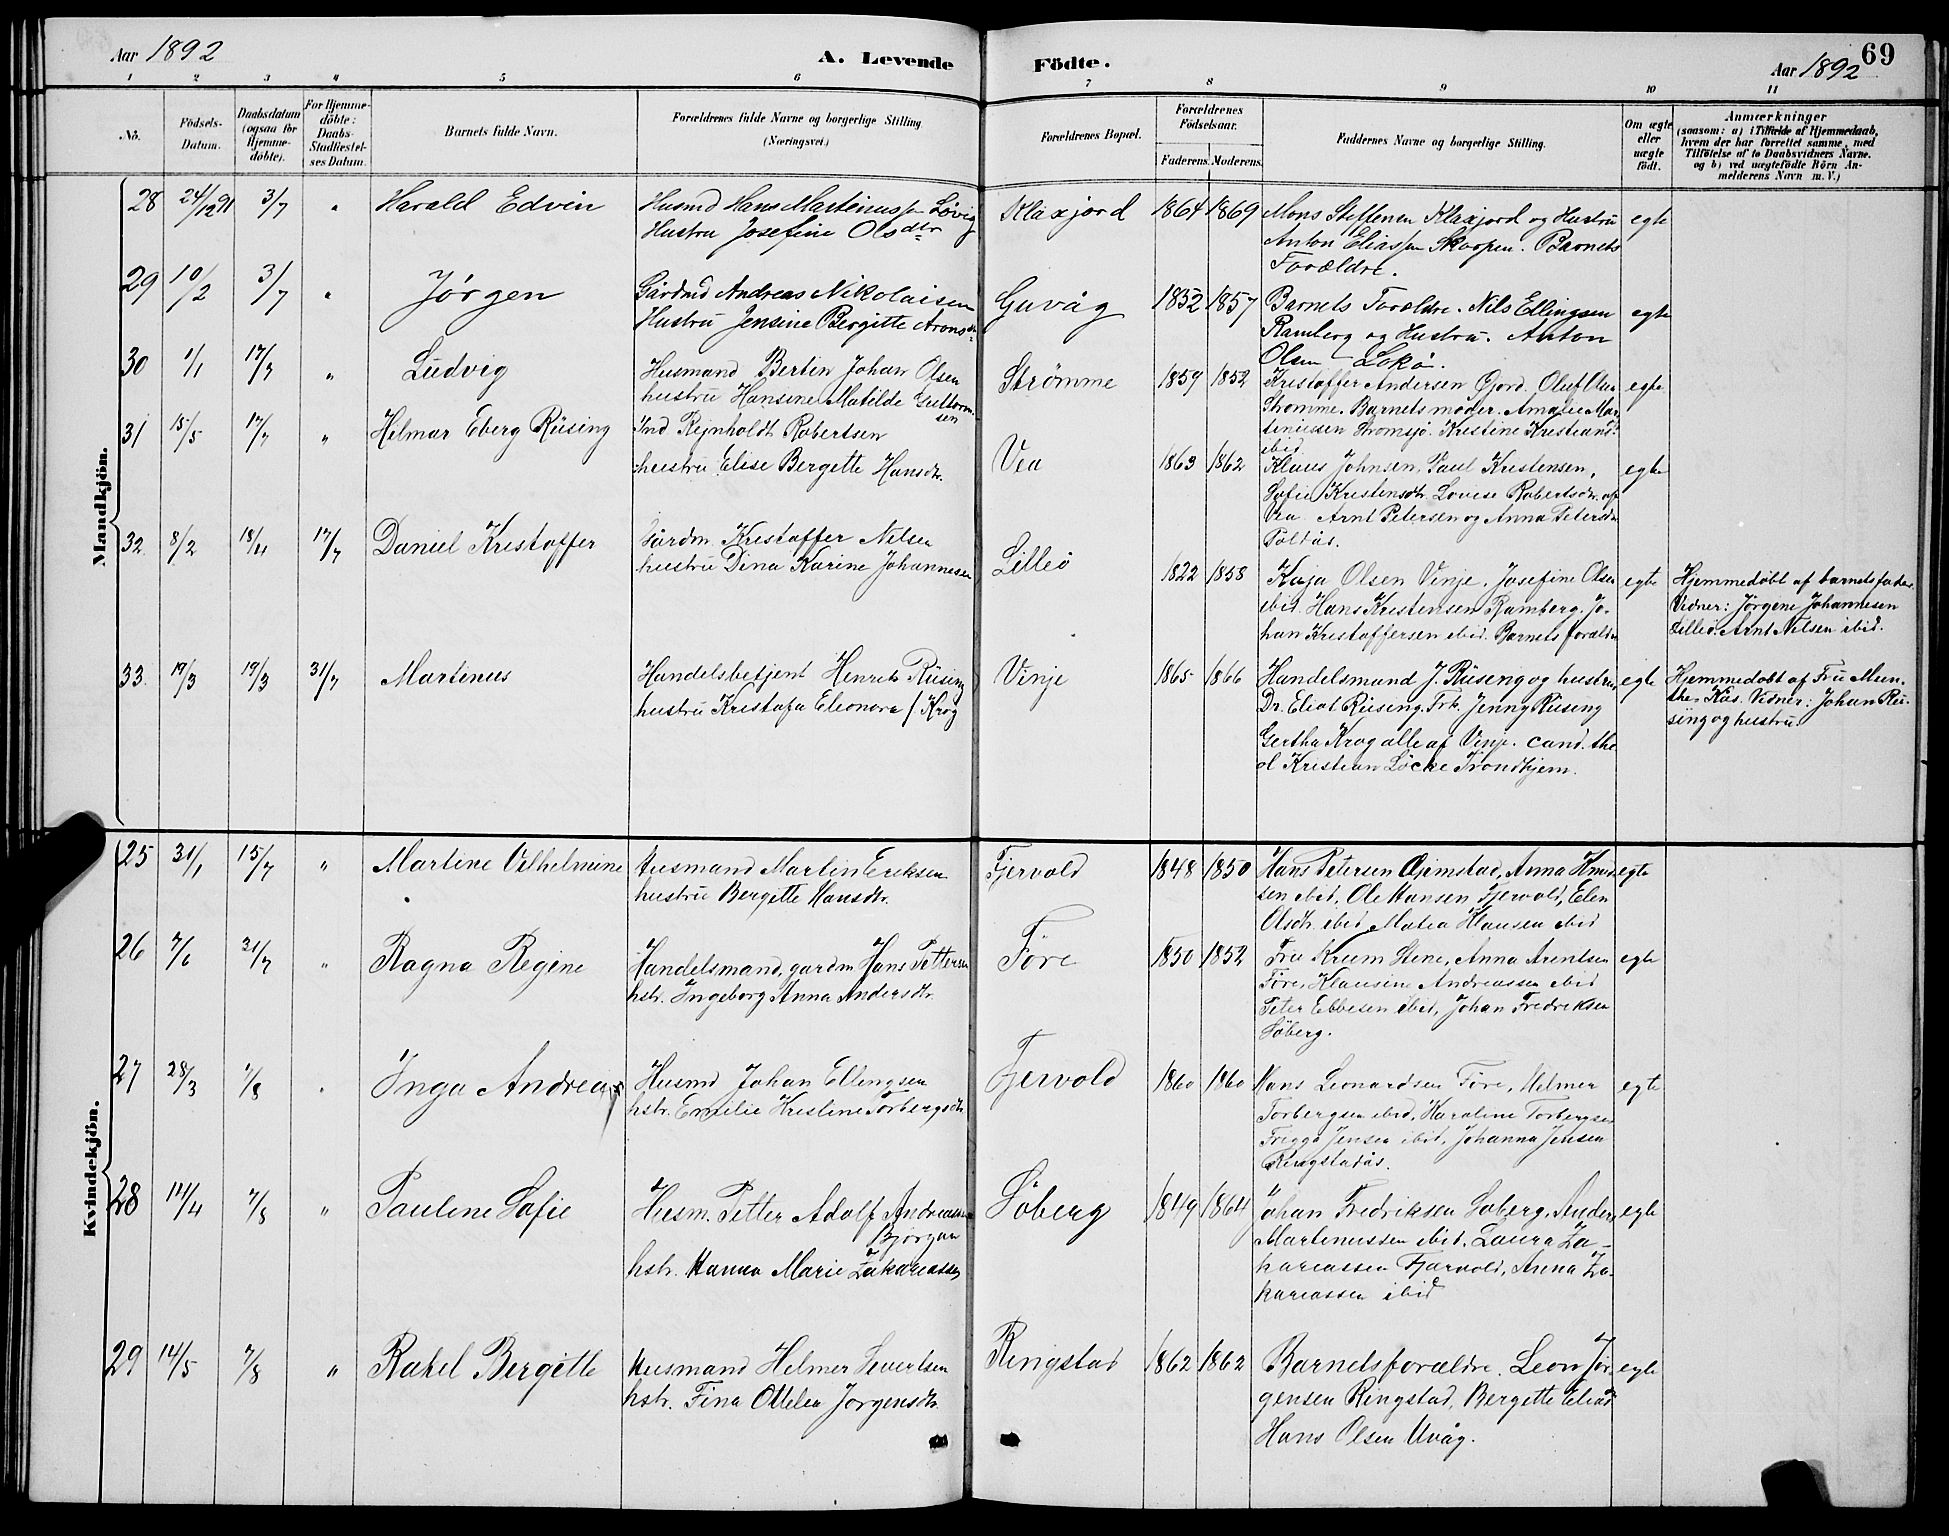 Aar 1892
A. Levende Födte.
Aar 1892
69
1 2 3 4 5 6 7 8 9 10 11
No.
Födsels-
Datum.
Daabsdatum
(ogsaa for
Hjemme-
döbte).
For Hjemme-
döbte:
Daabs-
Stadfæstel-
ses Datum.
Barnets fulde Navn.
Forældrenes fulde Navne og borgerlige Stilling.
(Næringsvei.)
Forældrenes Bopæl.
Forældrenes
Födselsaar.
Faderens. Moderens.
Faddernes Navne og borgerlige Stilling.
Om ægte
eller
uægte
født.
Anmærkninger
(saasom: a) i Tilfælde af Hjemmedaab,
hvem der har forrettet samme, med
Tilföielse af to Daabsvidners Navne.
og b) ved uægtefödte Börn An-
melderens Navn m. V.)
Mandkjön.
28 24/12 91 3/7 " Harald Edvin
Husmd Hans Martinussen Løvig
Hustru Josefine Olsdtr
Klaxjord 1864 1869
Mons Steffensen Klaxjord og Hustru
Anton Eliassen Skorpen. Barnets
Forældre.
egte
29 10/2 3/7 " Jørgen
Gårdmd Andreas Nikolaisen
Hustru Jensine Bergitte Aronsd
Guvåg 1832 1857
Barnets Forældre. Nils Ellingsen
Ramberg og Hustru. Anton
Olsen Lokø.
egte
30 1/1 17/7 " Ludvig
Husmand Bertin Johan Olsen
hustru Hansine Matilde Guttorm-
sen
Strømme 1859 1852
Kristoffer Andersen Gjord. Oluf Olsen
Strømme. Barnets moder. Amalie Mar-
tinussen Strømsjø. Kristine Kristians
ibid
egte
31 15/5 17/7 " Helmar Eberg Rüsing
Ind Rejnholdt Robertsen
hustru Elise Bergette Hansdtr.
Vea 1863 1862
Klaus Johnsen, Paul Kristensen,
Sofie Kristensdtr. Lovise Robertsdtr. af
Vea. Arnt Petersen og Anna Petersen
Poltås.
egte
32 8/2 18/4 17/7 Daniel Kristoffer
Gårdm. Kristoffer Nilsen
hustru Dina Karine Johannesen
Lilleø 1822 1858
Kaja Olsen Vinje. Josefine Olsen
ibid. Hans Kristensen Ramberg. Jo-
han Kristoffersen ibid. Barnets forældre
egte
Hjemmedøbt af barnets fader.
Vidner: Jørgine Johannesen
Lilleø. Arnt Nilsen ibid.
33. 19/3 19/3 31/7 Martinus
Handelsbetjent Henrik Rüsing
hustru Kristofa Eleonora f Krog
Vinje 1865 1866
Handelsmand J. Rüsing og hustru
Dr. Eliot Rüsing. Frk. Jenny Rüsing
Gertha Krog alle af Vinje. cand. the
ol Kristian Løcke Trondhjem.
egte
Hjemmedøbt af Fru Mun-
the Kås. Vidner: Johan Rü-
sing og hustru.
Kvindekjön.
25 31/1 15/7 " Martine Vilhelmine
Husmand Martin Eriksen
hustru Bergitte Hansdtr.
Fjervold 1848 1850
Hans Petersen Gjimstad, Anna Knud
sen ibid, Ole Hansen Fjervold, Elen
Olsdtr. ibid Matea Hansen ibid
egte
26 7/6 31/7 " Ragna Regine
Handelsmand, gardm Hans Pettersen
hstr. Ingeborg Anna Andersdtr.
Føre 1850 1852
Fru Krum Stene, Anna Arentsen
Føre, Klausine Andreassen ibid
Peter Ebbesen ibid, Johan Fredriksen
Søberg.
egte
27 28/3 7/8 " Inga Andrea
Husmd Johan Ellingsen
hstr. Emilie Kristine Torbergsdtr.
Fjervold 1860 1860
Hans Leonardsen Føre, Helmer
Torbergsen ibid, Karoline Torbergsen
Trigga Jensen ibid, Johanna Jensen
Ringstadås.
egte
28 14/4 7/8 " Pauline Sofie
Husm. Petter Adolf Andreassen
Bjørgan
hstr. Hanna Marie Zakariassen
Søberg 1849 1864
Johan Fredriksen Søberg, Anders
Martinussen ibid. Laura Za-
kariassen Fjærvold, Anna Za-
kariassen ibid
egte
29 14/5 7/8 " Rakel Bergitte
Husmand Helmer Sivertsen
hstr. Fina Ottelia Jørgensdtr.
Ringstad 1862 1862
Barnets forældre. Leon Jør-
gensen Ringstad, Bergitte Eliad
Hans Olsen Uvåg.
egte